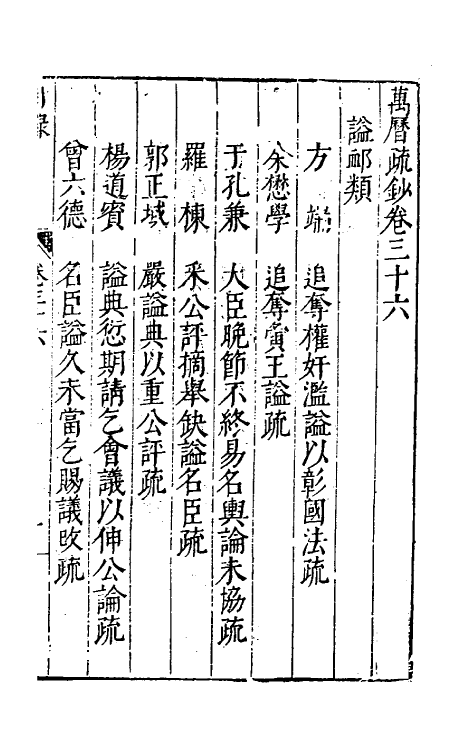 萬曆疏鈔卷三十六
謚䘏類
方 端 追奪權奸濫謚以彰國法疏
余懋學 追奪黃王謚疏
于孔兼 大臣晚節不終易名輿論未協疏
羅 棟 采公評摘舉缺謚名臣疏
郭正域 嚴謚典以重公評疏
楊道賓 謚典愆期請乞會議以伸公論疏
曾六德 名臣謚久未當乞賜議改疏
目錄 卷三十六 一